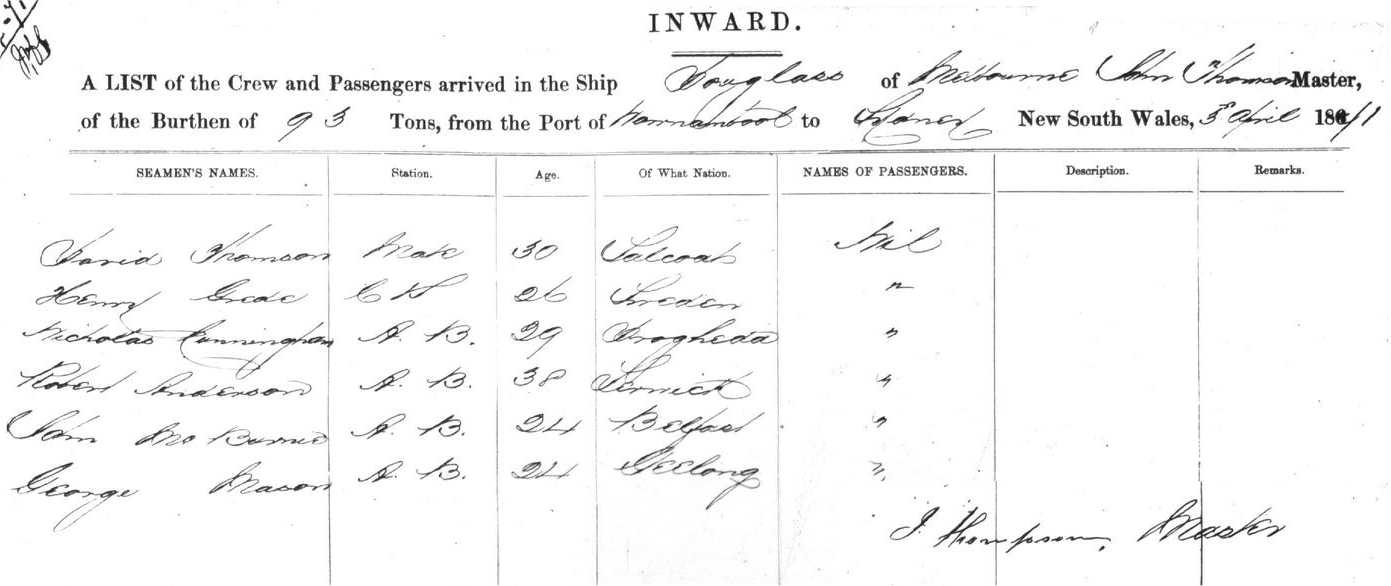 INWARD.
A LIST of the Crew and Passengers arrived in the Ship Douglass of Melbourne John Thomson Master,
of the Burthen of 93 Tons, from the Port of Warrnambool to Sydney New South Wales, 3rd April 1871
SEAMEN'S NAMES. Station. Age. Of What Nation. NAMES OF PASSENGERS. Description. Remarks.
David Thomson Mate 30 Salcoats Nil
Henry Grede C S 26 Sweden "
Nicholas Cunningham A. B. 29 Drogheda "
Robert Anderson A. B. 38 Lerwick "
John Mc Burnie A. B. 24 Belfast "
George Mason A. B. 24 Geelong "
J. Thompson, Master